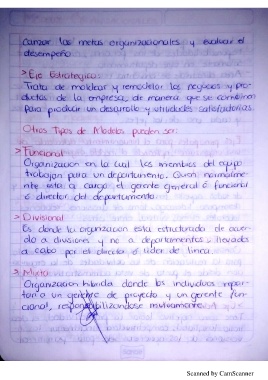 canzar las metas organizacionales y evaluar el
desempeño
> Eje Estrategico:
Trata de moldear y remodelar los negocios y pro-
ductos de la empresa, de manera que se combinen
para producir un desarrollo y utilidades satisfactorias.
Otros Tipos de Modelos pueden ser:
> Funcional
Organizacion en la cual los miembros del equipo
trabajan para un departamento. Quien normalme
nte esta a cargo el gerente general ó funcional
ó director del departamento
> Divisional
Es donde la organizacion esta estructurada de acuer-
do a divisiones y no a departamentos, llevados
a cabo por el director ó lider de linea.
> Mixta
Organizacion hibrida donde los individuos repor-
tan a un gerente de proyecto y un gerente fun-
cional, responsabilizandose mutuamente.
Scanned by CamScanner